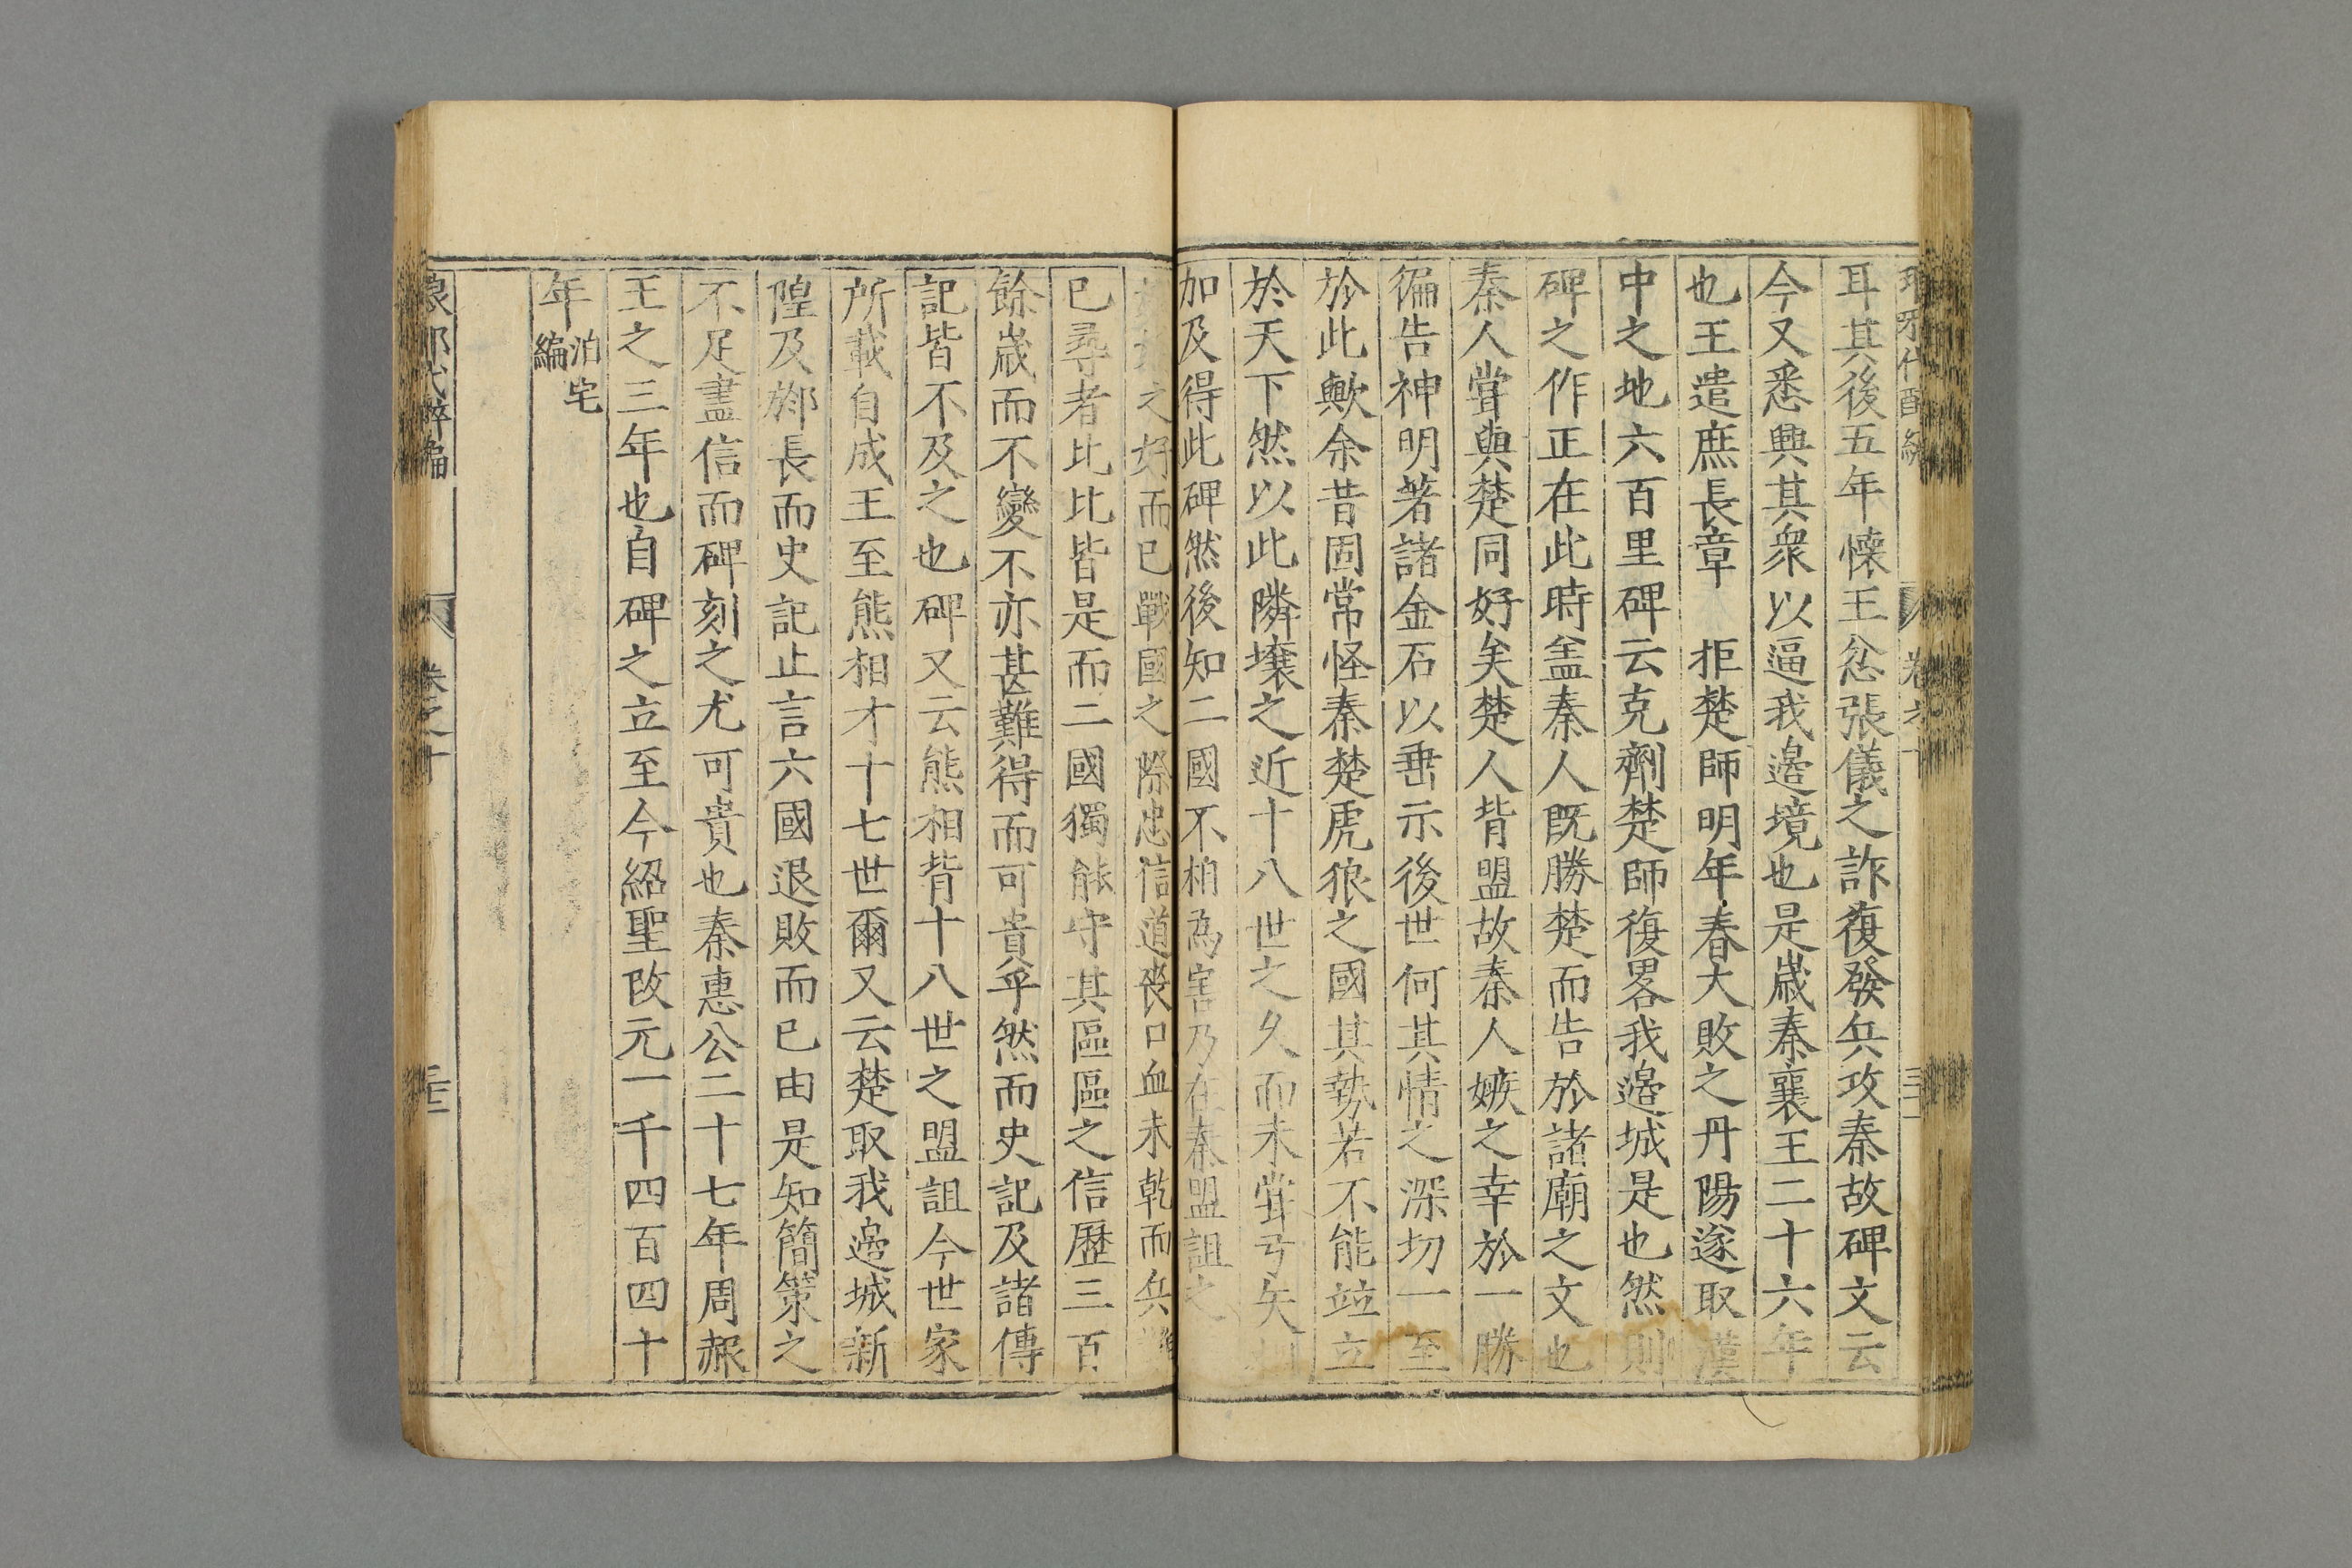 耳其後五年懷王忿張儀之詐復發兵攻秦故碑文云
今又悉興其衆以逼我邉境也是歲秦襄王二十六年
也王遣庶長章　拒楚師明年春大敗之丹陽遂取漢
中之地六百里碑云克劑楚師復畧我邉城是也然則
碑之作正在此時盖秦人既勝楚而告於諸廟之文也
秦人甞與楚同好矣楚人背盟故秦人嫉之幸於一勝
徧告神明著諸金石以垂示後世何其情之深切一至
於此歟余昔固常怪秦楚虎狼之國其勢若不能竝立
於天下然以此隣壤之近十八世之久而未甞弓矢相
加及得此碑然後知二國不相為害乃在秦盟詛之
之好而已戰國之際忠信道喪口血未乾而兵
已尋者比比皆是而二國獨能守其區區之信歷三百
餘歲而不變不亦甚難得而可貴乎然而史記及諸傳
記皆不及之也碑又云熊相背十八世之盟詛今世家
所載自成王至熊相才十七世爾又云楚取我邉城新
隍及䣍長而史記止言六國退敗而已由是知簡策之
不足盡信而碑刻之尤可貴也秦惠公二十七年周赧
王之三年也自碑之立至今紹聖改元一千四百四十
年泊宅編
卷之十